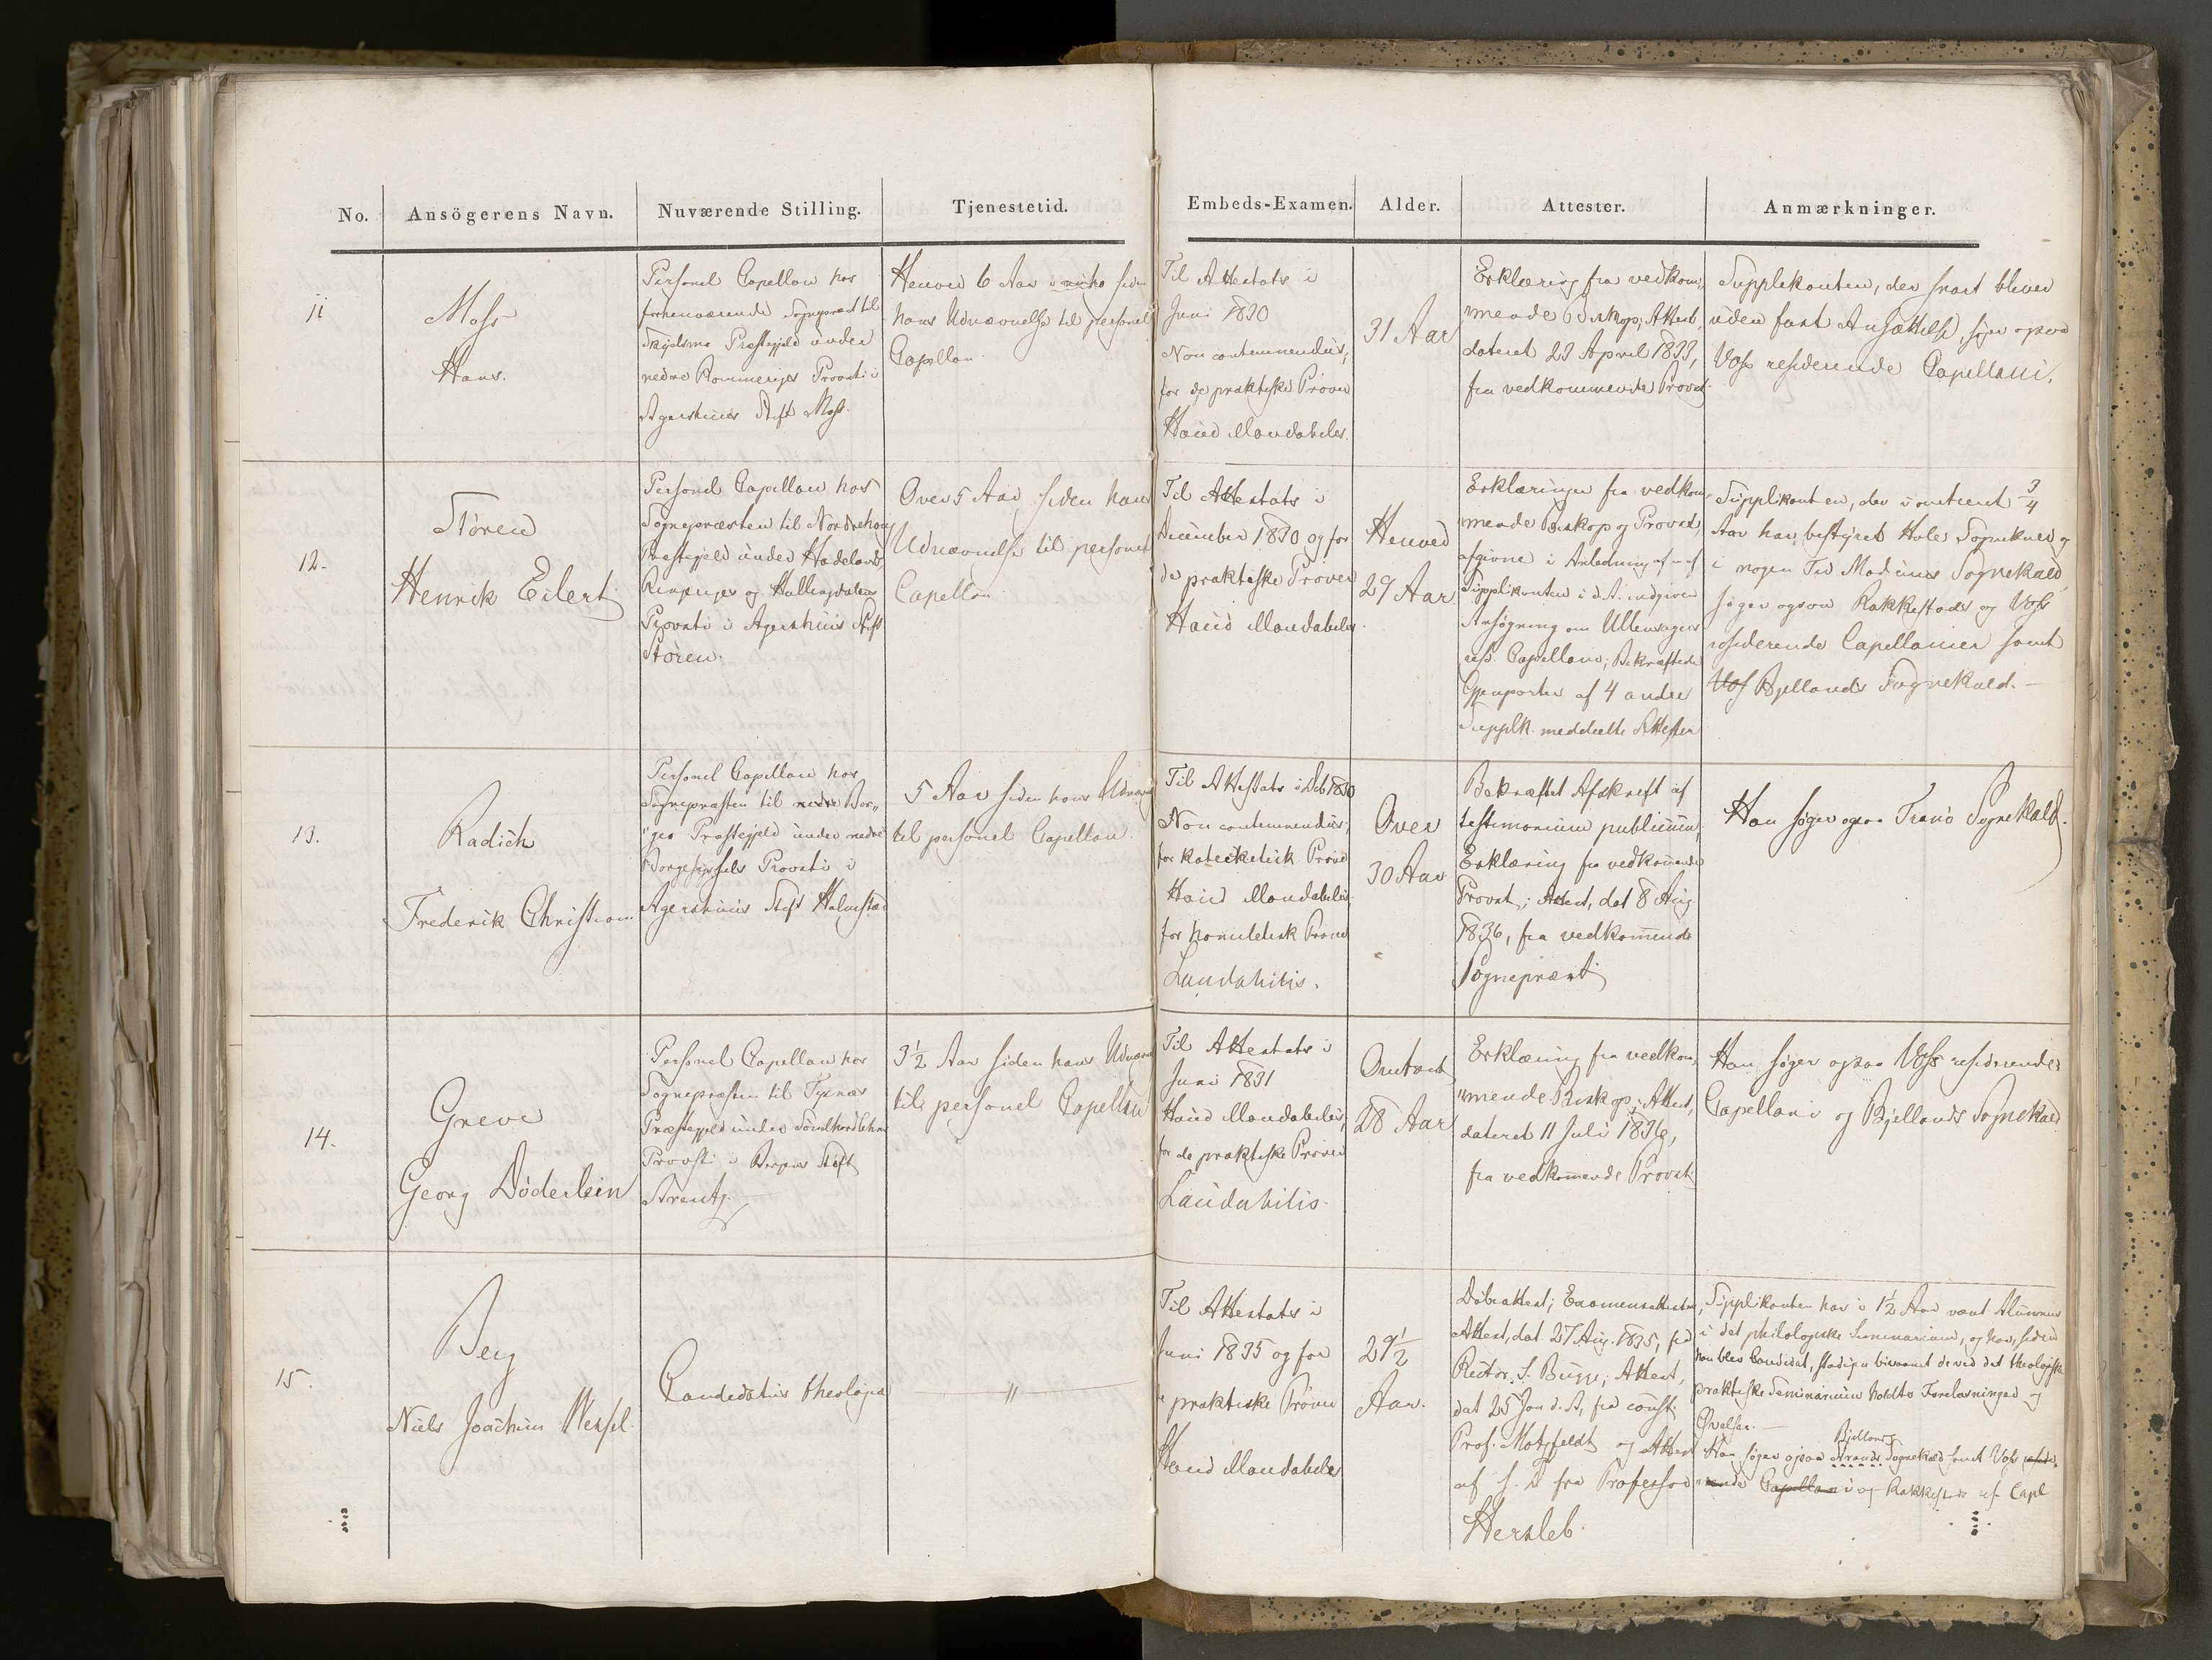 No.
Ansögerens Navn.
Nuværende Stilling.
Tjenestetid.
Embeds-Examen.
Alder.
Attester.
Anmærkninger.
11
Moss
Hans.
Personel Capellan hos
forhenværende Sognepræst til
Præstegjeld under
nedre Rommeriges Provsti i
Agershuus Stift Moss.
Henved 6 Aar siden
hans Udnævnelse til personel
Capellan.
Til Attestats i
Juni 1830
Non contemnendus,
for de praktiske Prøver
Haud illaudabilis.
31 Aar
Erklæring fra vedkom„
mende Biskop; Attest,
dateret 23 April 1833,
fra vedkommende Provst.
Supplikanten, der snart bliver
uden fast Ansættelse, søger ogsaa
Voss residerende Capellani.
12.
Støren
Henrik Eilert
Personel Capellan hos
Sognepræsten til Nordrehoug
Præstegjeld under Hadelands,
Ringeriges og Hallingdalens
Provsti i Agershuus Stift
Støren.
Over 5 Aar siden hans
Udnævnelse til personel
Capellan.
Til Attestats i
December 1830 og for
de praktiske Prøver
Haud illaudabilis.
Henved
29 Aar
Erklæringer fra vedkom„
mende Biskop og Provst,
afgivne i Anledning af en af
Supplikanten i d. A. indgiven
Ansøgning om Ullensagers
ress. Capellani; Bekræftede
Gjenparter af 4 andre
Supplk. meddeelte Attester
Supplikanten, der i omtrent 3/4
Aar har bestyret Hole Sognekald og
i nogen Tid Modums Sognekald,
søger ogsaa Rakkestads og Voss
residerende Capellanier samt
Voss Bjellands Sognekald. —
13.
Radich
Frederik Christian
Personel Capellan hos
Sognepræsten til nedre Bor„
„ges Præstegjeld under nedre
Borgesyssels Provsti i
Agershuus Stift Halmstad
5 Aar siden hans Udnævn.
til personel Capellan.
Til Attestats i Deb 1830
Non contemnendus;
for katecketisk Prøve
Haud illaudabilis.
for homiletisk Prøve
Laudabilis.
Over
30 Aar
Bekræftet Afskrift af
testimonium publicum,
Erklæring fra vedkommende
Provst; Attest, dat 8 Aug.
1836, fra vedkommende
Sognepræst
Han søger ogsaa Tranø Sognekald.
14.
Greve
Georg Døderlein
Personel Capellan hos
Sognepræsten til Tysnæs
Præstegjeld under Søndhordlehns
Provsti i Bergens Stift
Arentz.
3½ Aar siden hans Udnævn
til personel Capellan
Til Attestats i
Juni 1831
Haud illaudabilis,
for de praktiske Prøver
Laudabilis.
Omtrent
28 Aar
Erklæring fra vedkom„
„mende Biskop; Attest,
dateret 11 Juli 1836,
fra vedkommende Provst.
Han søger ogsaa Voss residerende
Capellani og Bjellands Sognekald
15.
Berg
Niels Joachim Wessel.
Candidatus theologiæ
"
Til Attestats i
Juni 1835 og for
de praktiske Prøver
Haud illaudabilis
29½
Aar.
Døbeattest; Examensattester,
Attest, dat. 27 Aug. 1835, fra
Rector S. Bugge; Attest,
dat 25 Jan d. A, fra const.
Prof. Motzfeldt og Attest
af s. D fra Professor
Hersleb.
Supplikanten har i 1½ Aar været Alumnus
i det philologiske Seminarium, og har, siden
han blev Candidat, stadigen bivaanet de ved det theologiske
praktiske Seminarium holdte Forelæsninger og
Øvelser. —
Bjellands
Han søger ogsaa Sognekald samt Voss reside„
„rende Capellani og Rakkestads res. Capl